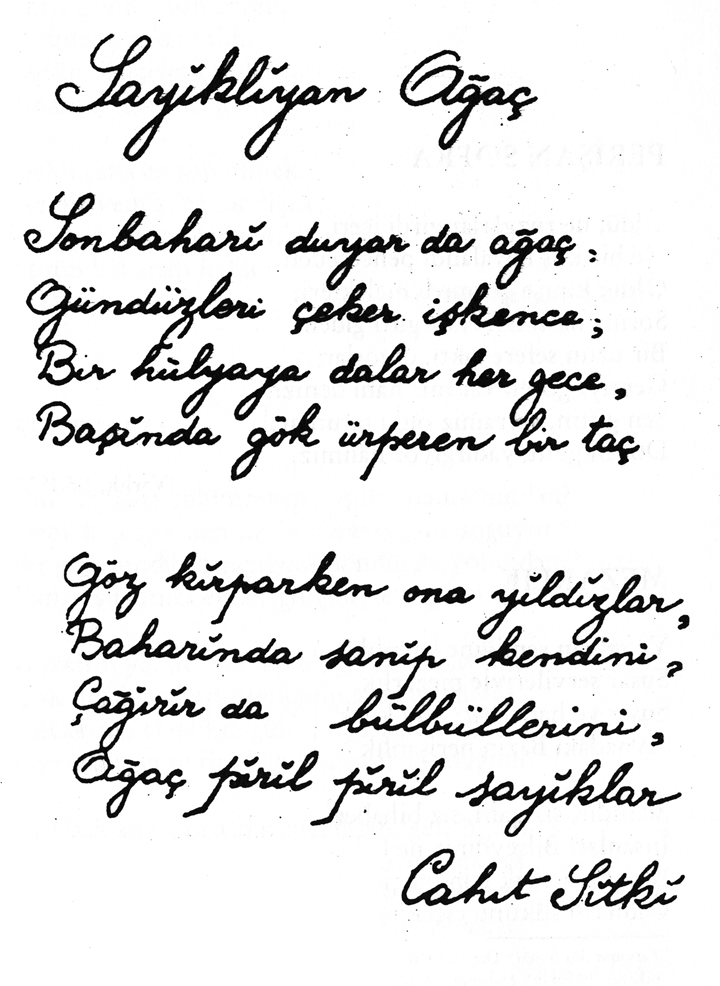 Sayıklıyan Ağaç
Sonbaharı duyar da ağaç :
Gündüzleri çeker işkence;
Bir hülyaya dalar her gece,
Başında gök ürperen bir taç
Göz kırparken ona yıldızlar,
Baharında sanıp kendini,
Çağırır da bülbüllerini,
Ağaç pırıl pırıl sayıklar
Cahit Sıtkı